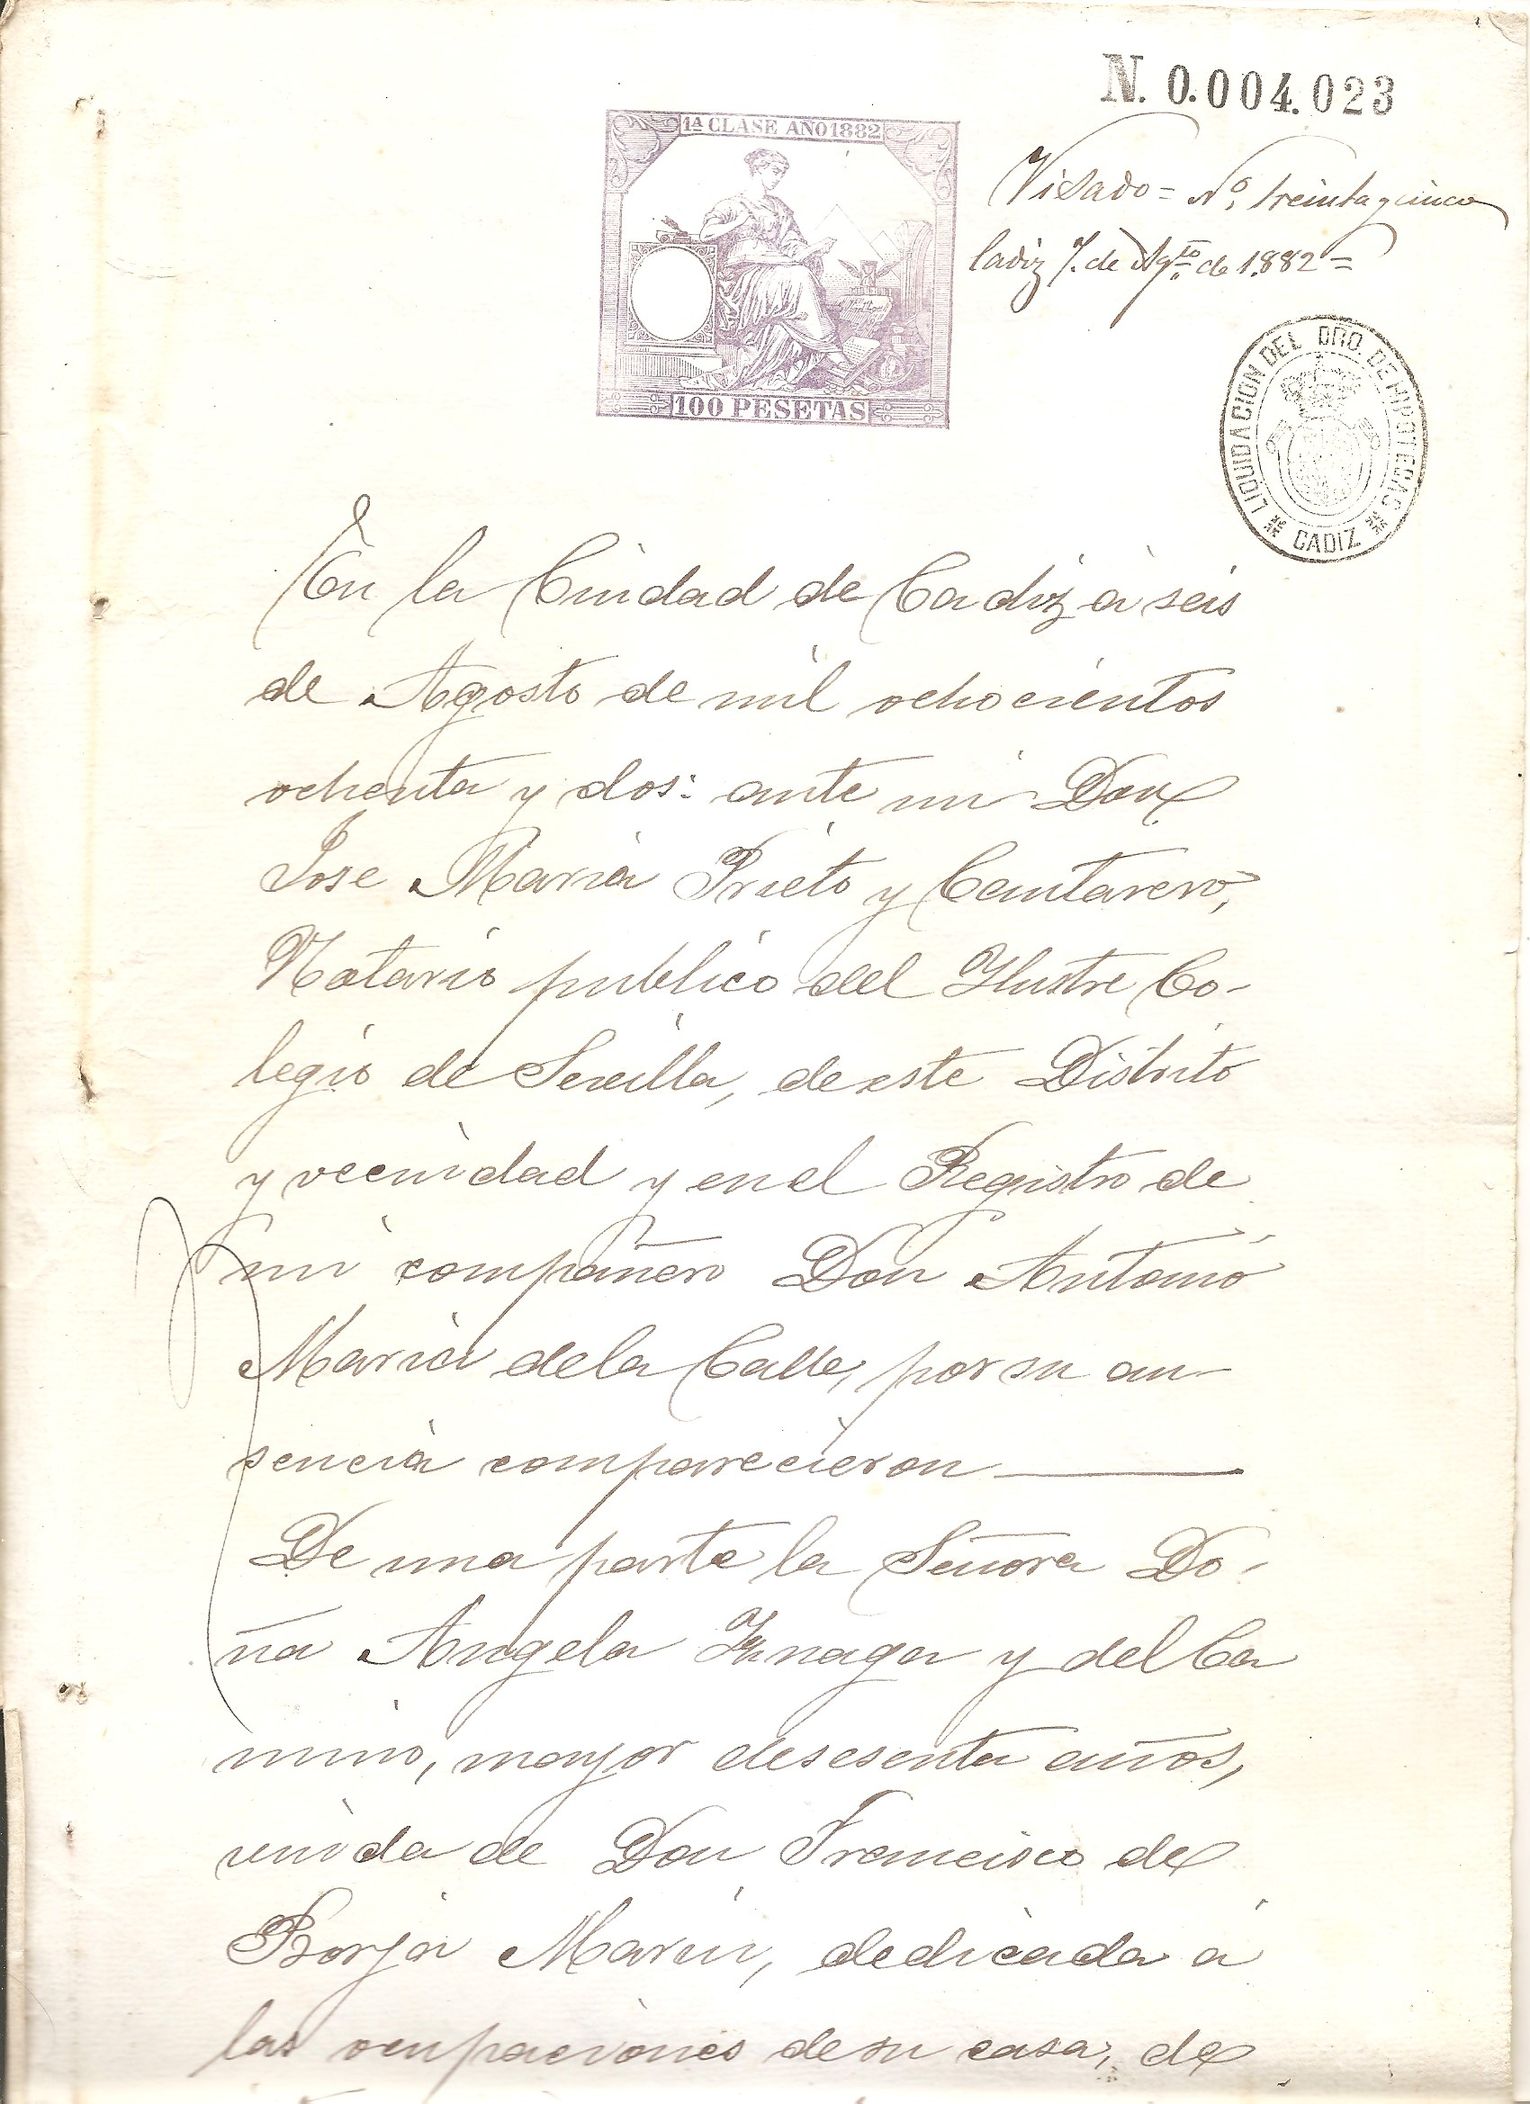 N. 0.004.023
1ª CLASE AÑO 1882
100 PESETAS
Visado = Nº. treinta y cinco
Cadiz 7. de Agto. de 1.882 =
LIQUIDACION DEL DRO. DE HIPOTECAS
CADIZ
En la Ciudad de Cadiz à seis
de Agosto de mil ochocientos
ochenta y dos: ante mi Don
Jose Maria Prieto y Cantarero,
Notario publico del Ylustre Co-
legio de Sevilla, de este Distrito
y vecindad y en el Registro de
mi compañero Don Antonio
Maria de la Calle, por su au-
sencia comparecieron
De una parte la Señora Do-
ña Angela y del Ca
mino, mayor de sesenta años,
viuda de Don Francisco de
Borja Marin, dedicada á
las ocupaciones de su casa, de